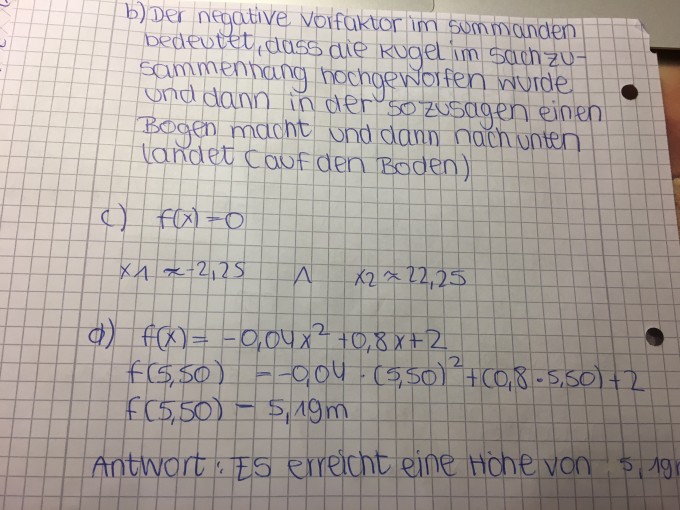 b) Der negative Vorfaktor im summanden
bedeutet, dass die Kugel im Sachzu-
sammenhang hochgeworfen wurde
und dann in der sozusagen einen
Bogen macht und dann nach unten
landet (auf den Boden)
c) f(x) = 0
x1 ≈ -2,25 ∧ x2 ≈ 22,25
d) f(x) = -0,04x² + 0,8x + 2
f(5,50) = -0,04 · (5,50)² + (0,8 · 5,50) + 2
f(5,50) = 5,19m
Antwort: Es erreicht eine Höhe von 5,19m